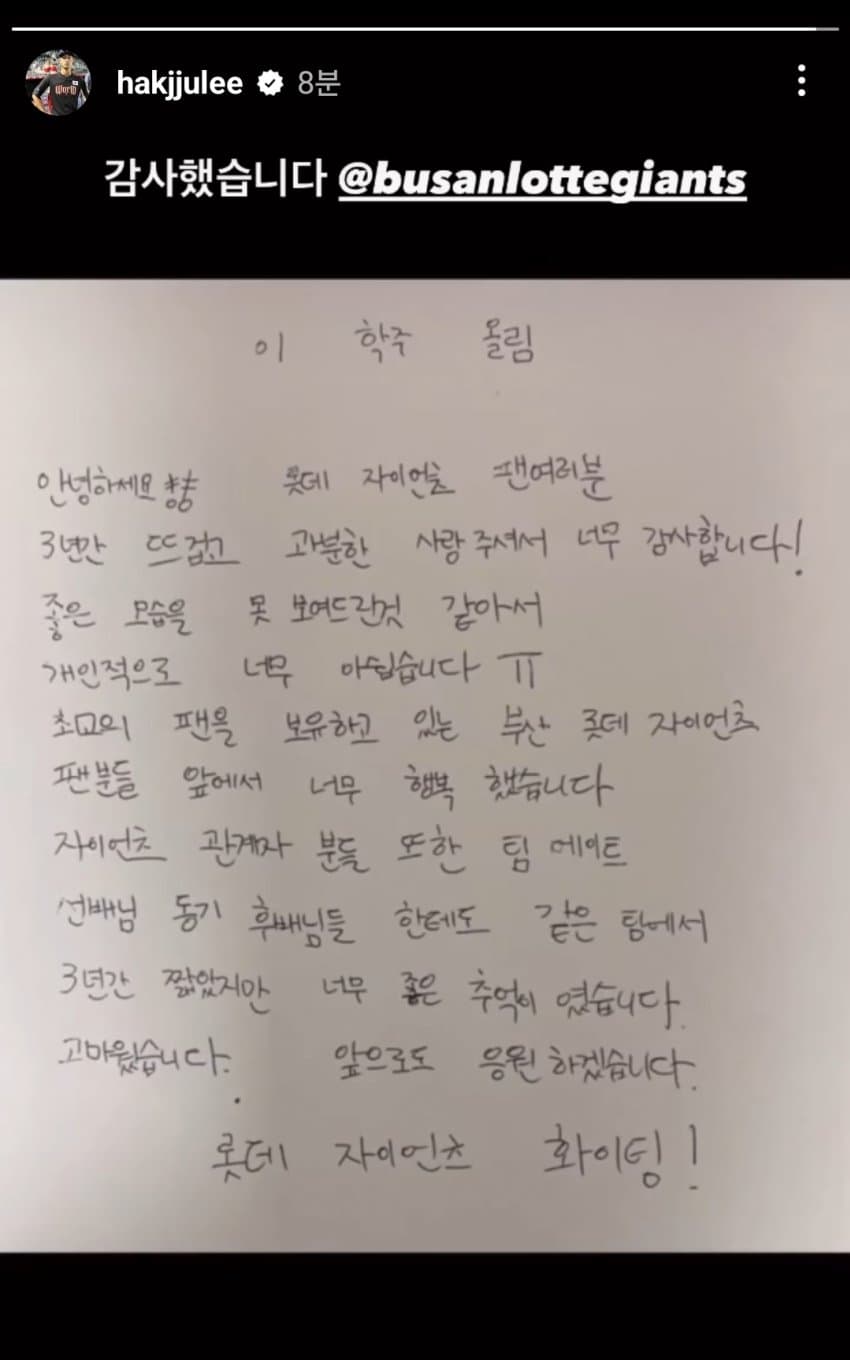 hakjjulee 8분
감사했습니다 @busanlottegiants
이 학주 올림
안녕하세요 롯데 자이언츠 팬여러분
3년간 뜨겁고 과분한 사랑주셔서 너무 감사합니다!
좋은 모습을 못 보여드린것 같아서
개인적으로 너무 아쉽습니다 ㅠ
초고의 팬을 보유하고 있는 부산 롯데 자이언츠
팬분들 앞에서 너무 행복 했습니다
자이언츠 관계자 분들 또한 팀 메이트
선배님 동기 후배님들 한테도 같은 팀에서
3년간 짧았지만 너무 좋은 추억이 였습니다.
고마웠습니다. 앞으로도 응원 하겠습니다.
롯데 자이언츠 화이팅!